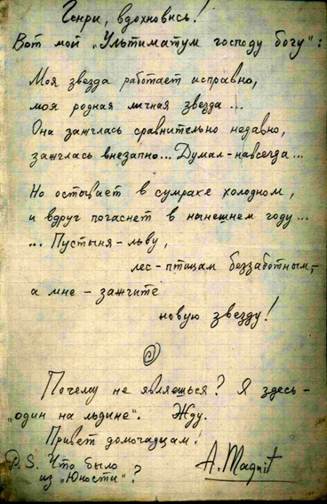 Генри, вдохновись!
Вот мой „Ультиматум господу богу":
Моя звезда работает исправно,
моя родная личная звезда...
Она зажглась сравнительно недавно,
зажглась внезапно... Думал-навсегда...
Но остывает в сумраке холодном,
и вдруг погаснет в нынешнем году...
... Пустыня-льву,
лес-птицам беззаботным,-
а мне - зажгите
новую звезду!
Почему не являешься? Я здесь-
„один на льдине". Жду.
Привет домочадцам!
P.S. Что было
из „Юности"?
A. Magnit